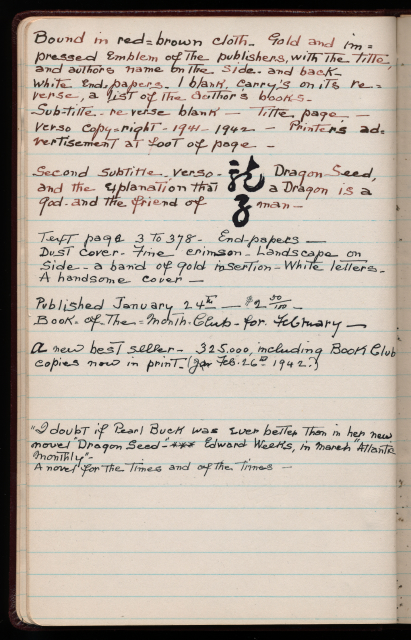 Bound in red=brown cloth- Gold and im=
pressed Emblem of the publishers, with the title,
and authors name on the side- and back-
White End papers- 1 blank, carry's on its re=
verse, a list of the author's books-
Sub-title- reverse blank — Title page —
Verso Copy=right- 1941- 1942 - Printers ad=
vertisement at foot of page -
Second subtitle- verso- 龍 Dragon-Seed,
and the Explanation that 子 a Dragon is a
god- and the friend of man —
Text page 3 to 378- End-papers —
Dust cover- Fine crimson- Landscape on
Side- a band of gold insertion- White letters-
A handsome cover —
Published January 24th — $2 50/100 —
Book- of The= Month- Club- for February —
a new best seller- 325,000, including Book Club
copies now in print- (Feb. 26th 1942.)
"I doubt if Pearl Buck was Ever better than in her new
novel "Dragon Seed"- *** Edward Weeks, in march "Atlantic
Monthly"-
A novel for the Times and of the Times —